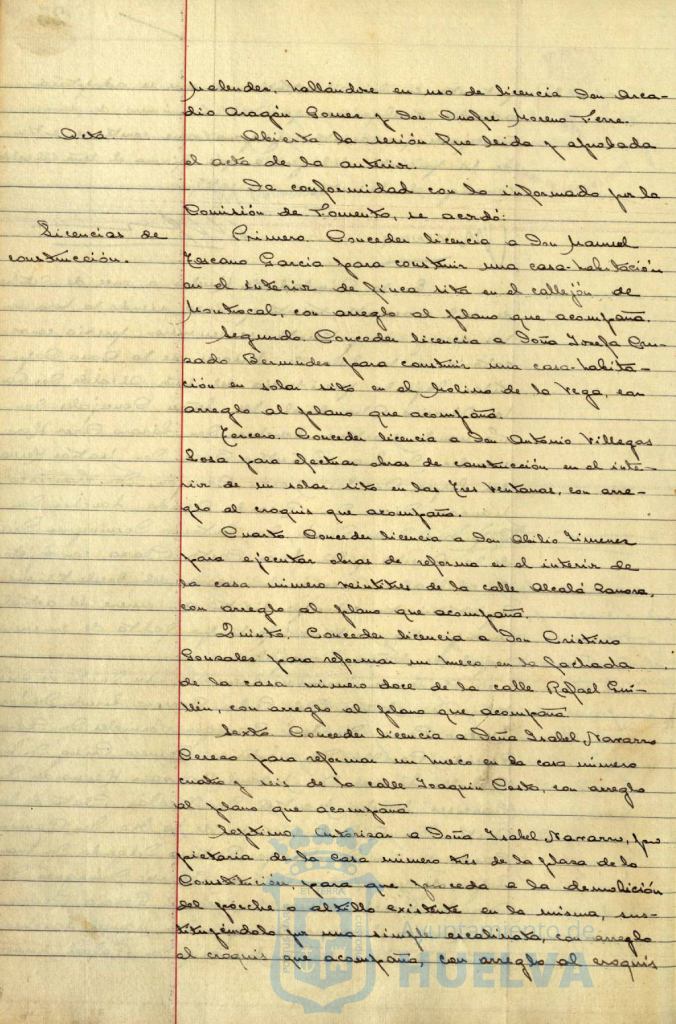 Melendez, hallándose en uso de licencia Don Arca-
dio Aragón Gomez y Don Onofre Moreno Terre.
Acta.
Abierta la sesión fue leida y aprobada
el acta de la anterior.
De conformidad con lo informado por la
Comisión de Fomento, se acordó:
Licencias de
construcción.
Primero. Conceder licencia a Don Manuel
Toscano Garcia para construir una casa-habitación
en el interior de finca sita en el callejón de
Montrocal, con arreglo al plano que acompaña.
Segundo. Conceder licencia a Doña Josefa Cru-
zado Bermudez para construir una casa-habita-
ción en solar sito en el Molino de la Vega, con
arreglo al plano que acompaña.
Tercero. Conceder licencia a Don Antonio Villegas
Sosa para efectuar obras de construcción en el inte-
rior de un solar sito en las Tres Ventanas, con arre-
glo al croquis que acompaña.
Cuarto. Conceder licencia a Don Abilio Jimenez
para ejecutar obras de reforma en el interior de
la casa número veintitres de la calle Alcalá Zamora,
con arreglo al plano que acompaña.
Quinto. Conceder licencia a Don Cristino
Gonzales para reformar un hueco en la fachada
de la casa número doce de la calle Rafael Gui-
llén, con arreglo al plano que acompaña
Sexto. Conceder licencia a Doña Isabel Navarro
Cerezo para reformar un hueco en la casa número
cuatro y seis de la calle Joaquin Costa, con arreglo
al plano que acompaña
Septimo. Autorizar a Doña Isabel Navarro, pro
pietaria de la casa número tres de la plaza de la
Constitución, para que proceda a la demolición
del porche o altillo existente en la misma, sus-
tituyéndolo por una simple escalinata, con arreglo
al croquis que acompaña, con arreglo al croquis
Ayuntamiento de
HUELVA